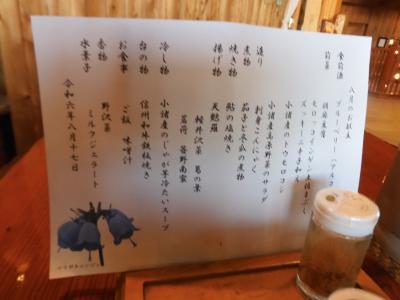 八月のお献立
食前酒
ブルーベリー
前菜
胡麻豆腐
モロッコインゲン
ズッキーニ
小諸産のトウモロコシ
小諸産高原野菜のサラダ
造り
刺身こんにゃく
煮物
茄子と冬瓜の煮物
焼き物
鮎の塩焼き
揚げ物
天麩羅
軽井沢菜
茗荷
冷し物
小諸産のじゃが芋冷たいスープ
台の物
信州和牛鉄板焼き
お食事
ご飯 味噌汁
香物
野沢菜
水菓子
ミルクジェラート
令和六年八月十七日